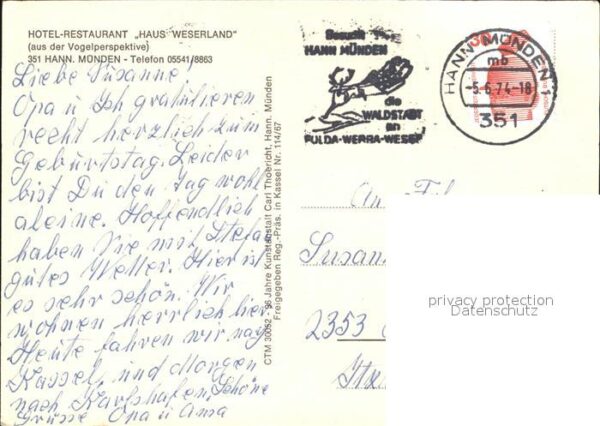 HOTEL-RESTAURANT „HAUS WESERLAND"
(aus der Vogelperspektive)
351 HANN. MÜNDEN - Telefon 05541/8863
Liebe Susanne!
Opa u Ich gratulieren
recht herzlich zum
Geburtstag. Leider
bist Du den Tag wohl
aleine. Hoffendlich
haben Sie mit Stefan
gutes Wetter. Hier ist
es sehr schön. Wir
wohnen herrlich hier
Heute fahren wir nach
Kassel und Morgen
nach Karlshafen. Schöne
Grüsse Opa u Ama
CTM 30052 - 96 Jahre Kunstanstalt Carl Thoericht, Hann. Münden
Freigegeben Reg.-Präs. in Kassel Nr. 114/67
Besucht
HANN MÜNDEN
die
WALDSTADT
an
FULDA-WERRA-WESER
HANN MÜNDEN 1
mb
-5.6.74-18
351
An
Susann
2353
privacy protection
Datenschutz